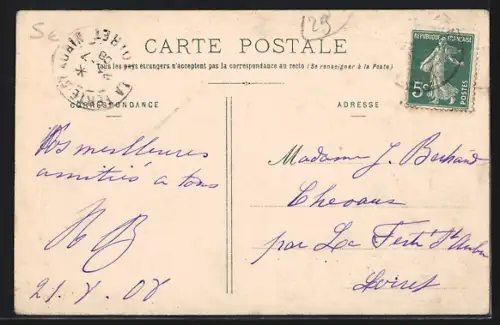 129
CARTE POSTALE
Tous les pays étrangers n'acceptent pas la correspondance au recto (Se renseigner à la Poste)
CORRESPONDANCE
ADRESSE
RÉPUBLIQUE FRANÇAISE
5c
POSTES
LA FERTÉ ST AUBIN
LOIRET
Vos meilleures
amitiés a tous
21.X.08
Madame J.
par La Ferté St Aubin
Loiret